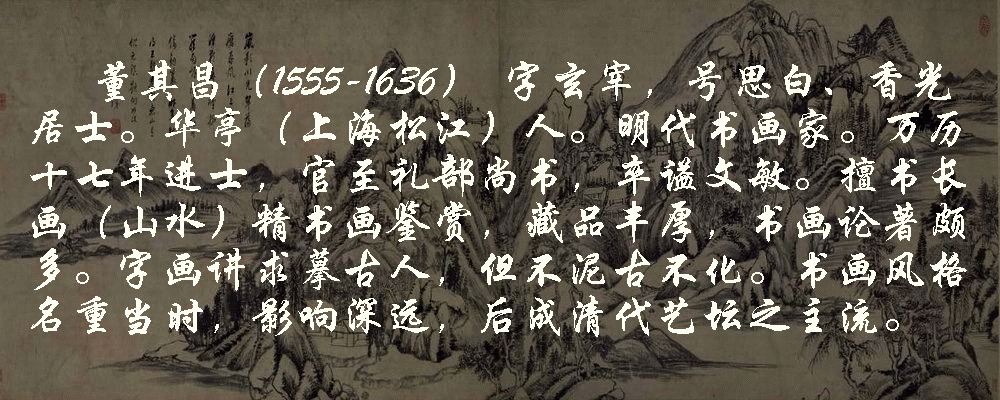 董其昌（1555-1636） 字玄宰，号思白、香光
居士。华亭（上海松江）人。明代书画家。万历
十七年进士，官至礼部尚书，卒谥文敏。擅书长
画（山水）精书画鉴赏，藏品丰厚，书画论著颇
多。字画讲求摹古人，但不泥古不化。书画风格
名重当时，影响深远，后成清代艺坛之主流。